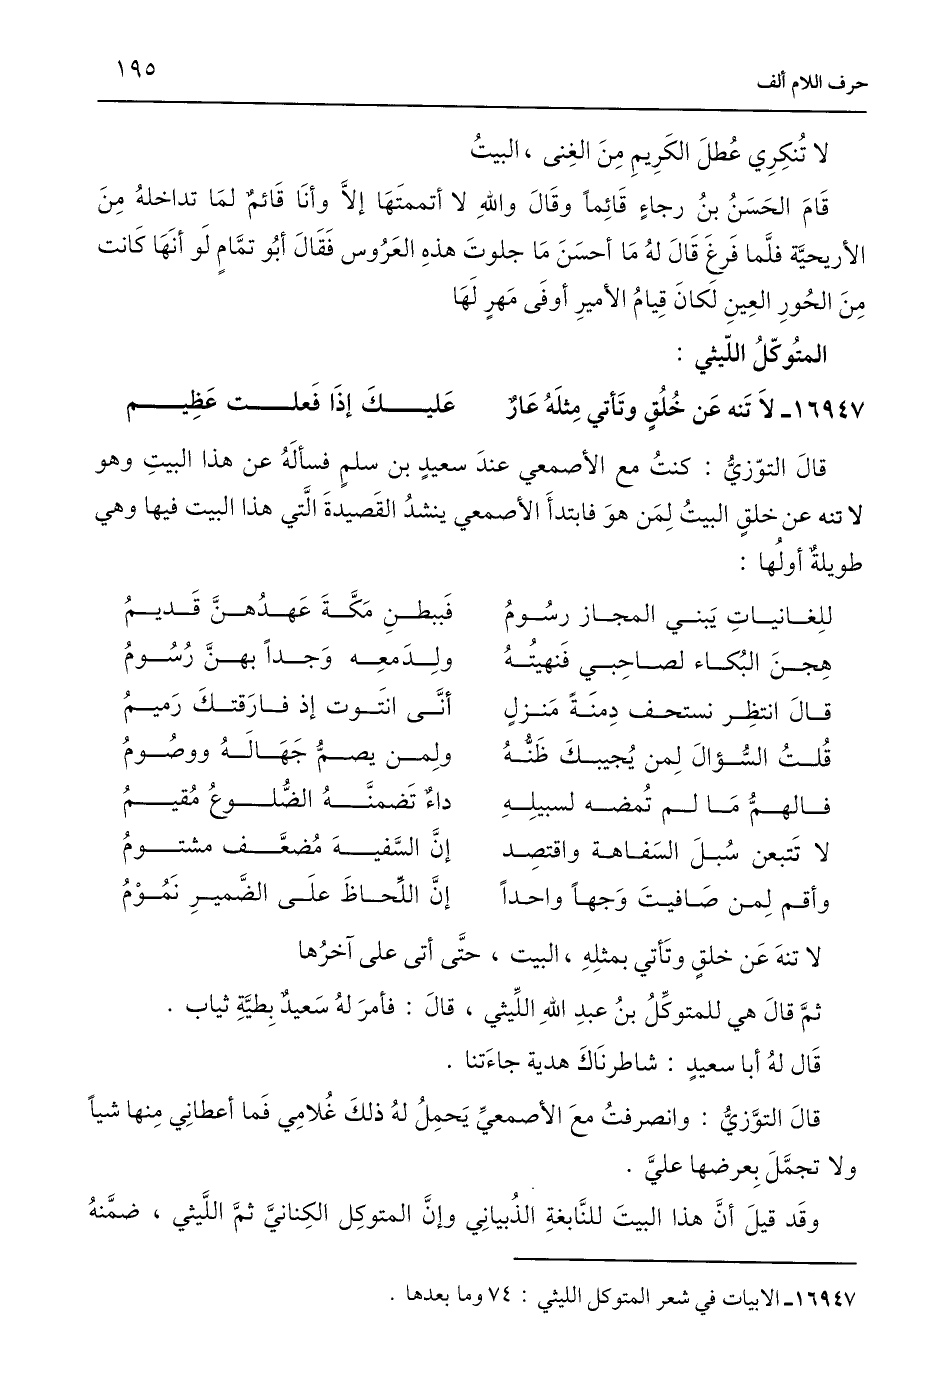 حرف اللام ألف ١٩٥
لا تُنكِرِي عُطلَ الكَرِيمِ مِنَ الغِنى ، البيتُ
قَامَ الحَسَنُ بنُ رجاءٍ قَائِماً وقَالَ واللهِ لا أتممتَهَا إلاَّ وأنَا قَائمٌ لمَا تداخلهُ مِنَ
الأريحيَّة فلَّما فرغَ قَالَ لهُ مَا أحسَنَ مَا جلوتَ هذهِ العَرُوس فقَالَ أبُو تمَّامٍ لَو أنهَا كَانت
مِنَ الحُورِ العِينِ لَكانَ قِيامُ الأميرِ أوفَى مَهرٍ لَهَا
المتُوكّلُ اللّيثي :
١٦٩٤٧ـ لاَ تَنه عَن خُلُقٍ وتَأتي مِثلَهُ عَارٌ عَليـــكَ إذَا فَعلـــت عَظِيـــم
قالَ التوّزيُّ : كنتُ مع الأصمعي عندَ سعيدٍ بن سلمٍ فسألهُ عن هذا البيتِ وهو
لا تنه عن خلقٍ البيتُ لِمَن هوَ فابتدأَ الأصمعي ينشدُ القصيدةَ الَّتي هذا البيت فيها وهي
طويلةٌ أولُها :
للِغـانيـاتِ يَبنـي المجـاز رسُـومُ فَببطـنِ مَكَّـةَ عَهـدُهـنَّ قَـديـمُ
هجـنَ البُكـاء لصـاحبـي فَنهيتُـهُ ولـدَمعـه وَجـداً بهـنَّ رُسُـومُ
قـالَ انتظِـر نستحـف دِمنَـةً مَنـزلٍ أنَّـى انتَـوت إذ فـارَقتـكَ رَميـمُ
قُلـتُ السُّـؤالَ لِمن يُجيبـكَ ظَنُّـهُ ولِمـن يصـمُّ جَهَـالَـهُ ووصُـومُ
فـالهـمُّ مَـا لـم تُمضـه لسبيلـهِ داءٌ تَضمنَّـهُ الضُّلـوعُ مُقيـمُ
لا تَتبعن سُبـلَ السَفـاهـة واقتصـد إنَّ السَّفيـهَ مُضعَّـف مشتـومُ
وأقـم لِمـن صَـافيـتَ وَجهـاً واحـداً إنَّ اللِّحـاظَ علـى الضَّميـرِ نَمُـوْمُ
لا تنهَ عَن خلقٍ وتَأتي بمثلِهِ ، البيت ، حتَّى أتى على آخرُها
ثمَّ قالَ هي للمتوكِّلُ بنُ عبدِ اللهِ اللَّيثي ، قالَ : فأمرَ لهُ سَعيدٌ بِطيَّةِ ثياب .
قَال لهُ أبا سعيدٍ : شاطرنَاكَ هدية جاءَتنا .
قالَ التوَّزيُّ : وانصرفتُ معَ الأصمعيِّ يَحمِلُ لهُ ذلكَ غُلامِي فَما أعطانِي مِنها شياً
ولا تجمَّلَ بِعرضها عليَّ .
وقَد قيلَ أنَّ هذا البيتَ للنَّابغةِ الذُبياني وإنَّ المتوكِل الكِنانيَّ ثمَّ اللَّيثي ، ضمَّنهُ
١٦٩٤٧ـ الابيات في شعر المتوكل الليثي : ٧٤ وما بعدها .